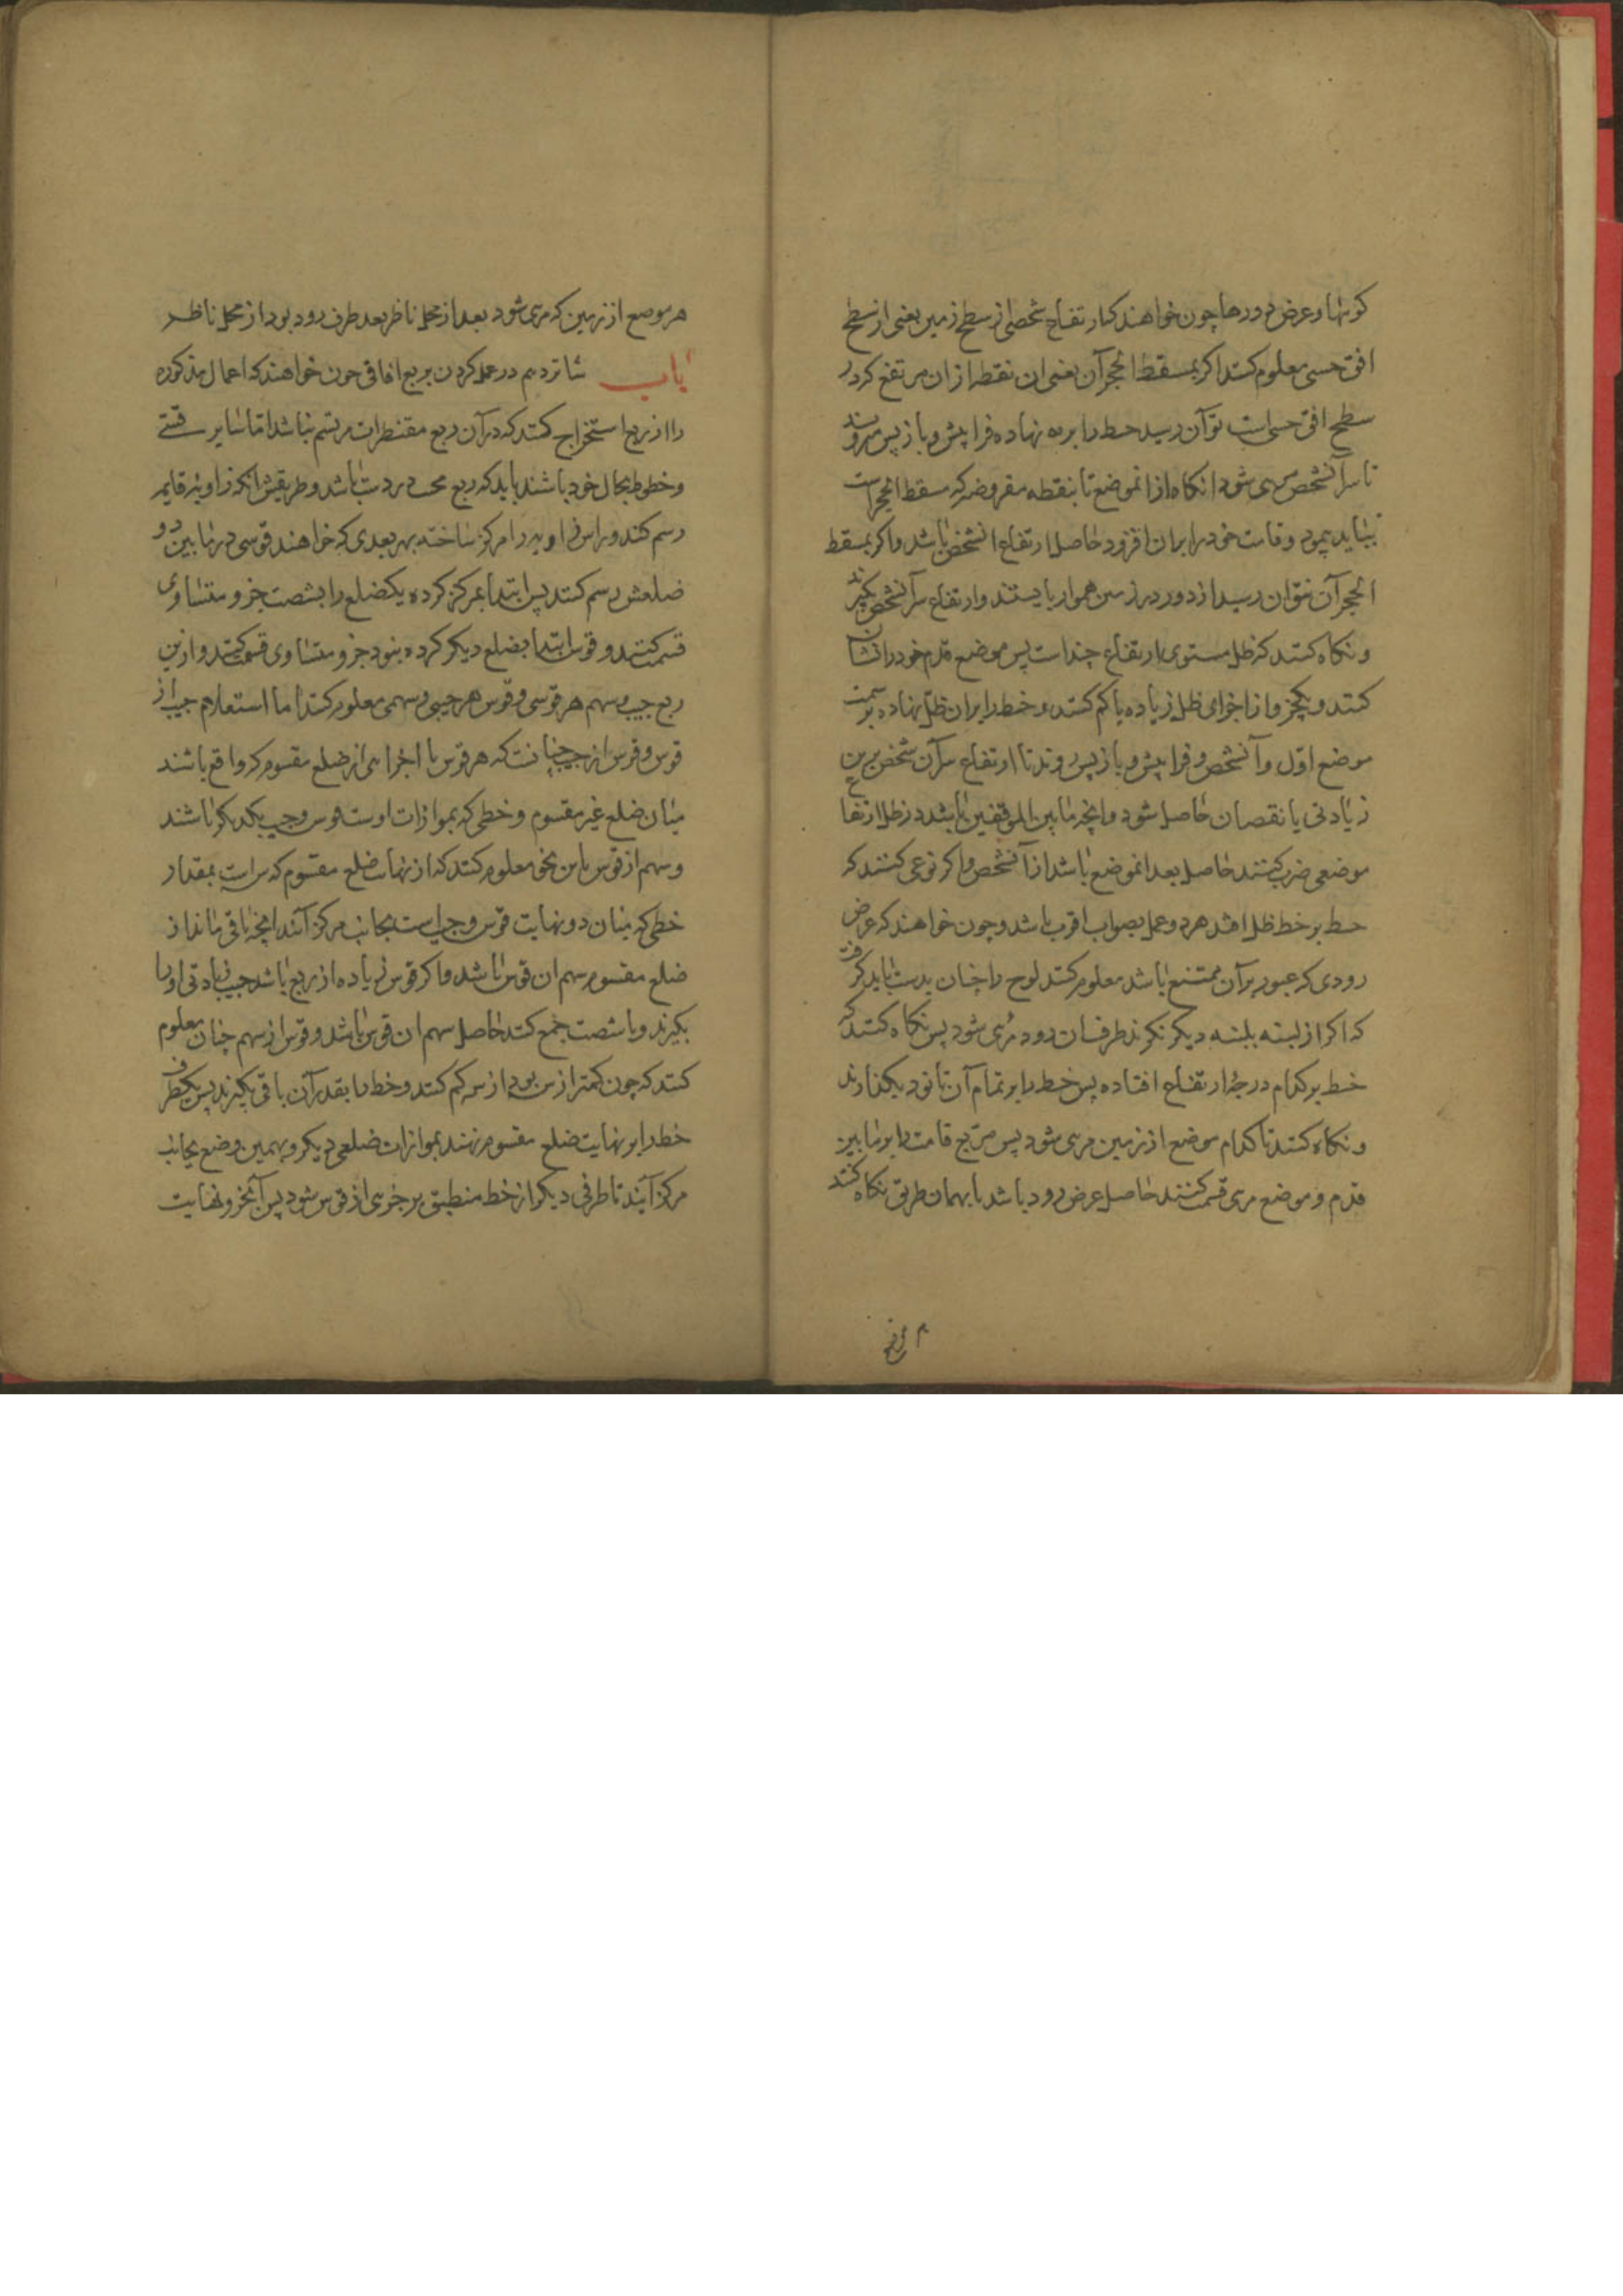 کوهها و عرض رودها چون خواهند که ارتفاع شخصی از سطح زمین یعنی از سطح
افق حسی معلوم کنند اگر بمسقط الحجر آن یعنی ان نقطه از ان مرتفع کرد در
سطح افق حسی است توان رسید خط را بر مه نهاده فرا پیش و باز پس میروند
تا سر آنشخص مری شود انکاه از انموضع تا بنقطه مفروضه که مسقط الحجر است
بباید پیمود و قامت خود را بران افزود حاصل ارتفاع انشخص باشد و اگر بمسقط
الحجر آن نتوان رسید از دور در زمین هموار بایستند و ارتفاع سر آنشخص بگیرند
و نکاه کنند که ظل مستوی ارتفاع چند است پس موضع قدم خود را نشان
کنند و یکجزو از اجزای ظل زیاده یا کم کنند و خط را بران ظل نهاده بر سمت
موضع اوّل و آنشخص فرا پیش و باز پس روند تا ارتفاع سر آن شخص برین
زیادتی یا نقصان حاصل شود و انچه ما بین الموقفین باشد در ظل ارتفاع
موضعی ضرب کنند حاصل بعد انموضع باشد از آنشخص و اکر نوعی کنند که
خط بر خط ظل افتد هر دو عمل بصواب اقرب باشد و چون خواهند که عرض
رودی که عبور بر آن ممتنع باشد معلوم کنند لوح را چنان بدست باید کرفت
که اکر از لبنه بلبنه دیگر نکرند طرف ان رود مُری شود پس نکاه کنند که
خط بر کدام درجهٔ ارتفاع افتاده پس خط را بر تمام آن تا نود بگذارند
و نکاه کنند تا کدام موضع از زمین مری شود پس مربع قامت را بر ما بین
قدم و موضع مری قسمت کنند حاصل عرض رود باشد یا بهمان طریق نکاه کنند
هر موضع از زمین که مری شود بعد از محل ناظر بعد طرف رود بود از محل ناظر
باب شانزدهم در عمل کردن بربع افاقی چون خواهند که اعمال مذکوره
را از ربع استخراج کنند که در آن ربع مقنطرات مرتسم نباشد امّا سایر قسی
و خطوط بحال خود باشند باید که ربع مجیب در دست باشد و طریقش انکه زاویهٔ قایمه
رسم کنند و راس زاویه را مرکز ساخته بهر بعدی که خواهند قوسی در ما بین دو
ضلعش رسم کنند پس ابتدا بمرکز کرده یکضلع را بشصت جزو متساوی
قسمت کنند و قوس ابتدا بضلع دیگر کرده بنود جزو متساوی قسمت کنند و ازین
ربع جیب و سهم هر قوسی و قوس هر جیبی و سهمی معلوم کنند اما استعلام جیب از
قوس و قوس از جیب چنانست که هر قوس با اجزایی از ضلع مقسوم که واقع باشند
میان ضلع غیر مقسوم و خطی که بموازات اوست قوس و جیب یکدیکر باشند
و سهم از قوس باین نحو معلوم کنند که از نهایت ضلع مقسوم که س است بمقدار
خطی که میان دو نهایت قوس و جیب است بجانب مرکز آیند انچه باقی ماند از
ضلع مقسوم سهم ان قوس باشد و اکر قوس زیاده از ربع باشد جیب زیادتی او را
بکیرند و با شصت جمع کنند حاصل سهم ان قوس باشد و قوس از سهم چنان معلوم
کنند که چون کمتر از س بود از س کم کنند و خط را بقدر آن باقی بگیرند پس یکطرف
خط را بر نهایت ضلع مقسوم نهند بموازات ضلعی دیگر و بهمین وضع بجانب
مرکز آیند تا طرفی دیگر از خط منطبق بر جزوی از قوس شود پس آنجزو نهایت